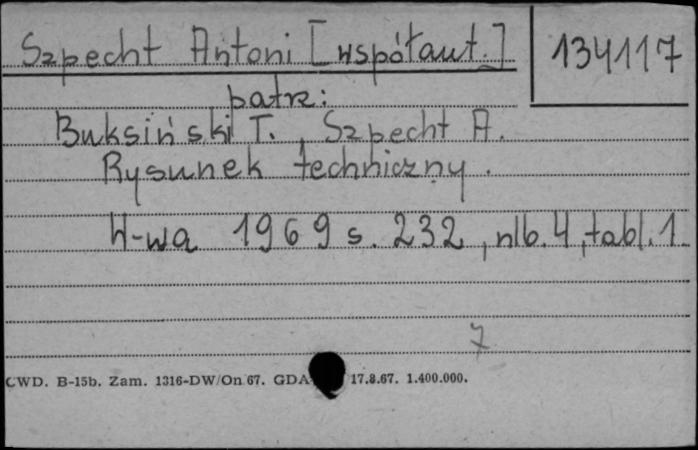 Szpecht Antoni [współaut.] 134117
patrz:
Buksiński T., Szpecht A.
Rysunek techniczny.
W-wa 1969 s. 232, nlb. 4, tabl. 1
7
CWD. B-15b. Zam. 1316-DW/On 67. GDA 17.8.67. 1.400.000.